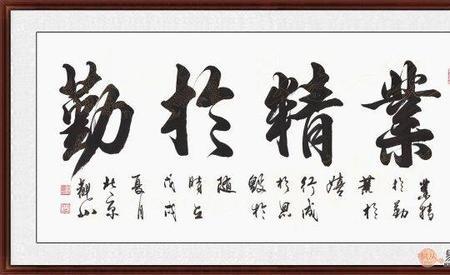 業精於勤
業精
於勤
荒於
嬉
行成
於思
毀於
隨
時在
戊戌
夏月
北京
觀山